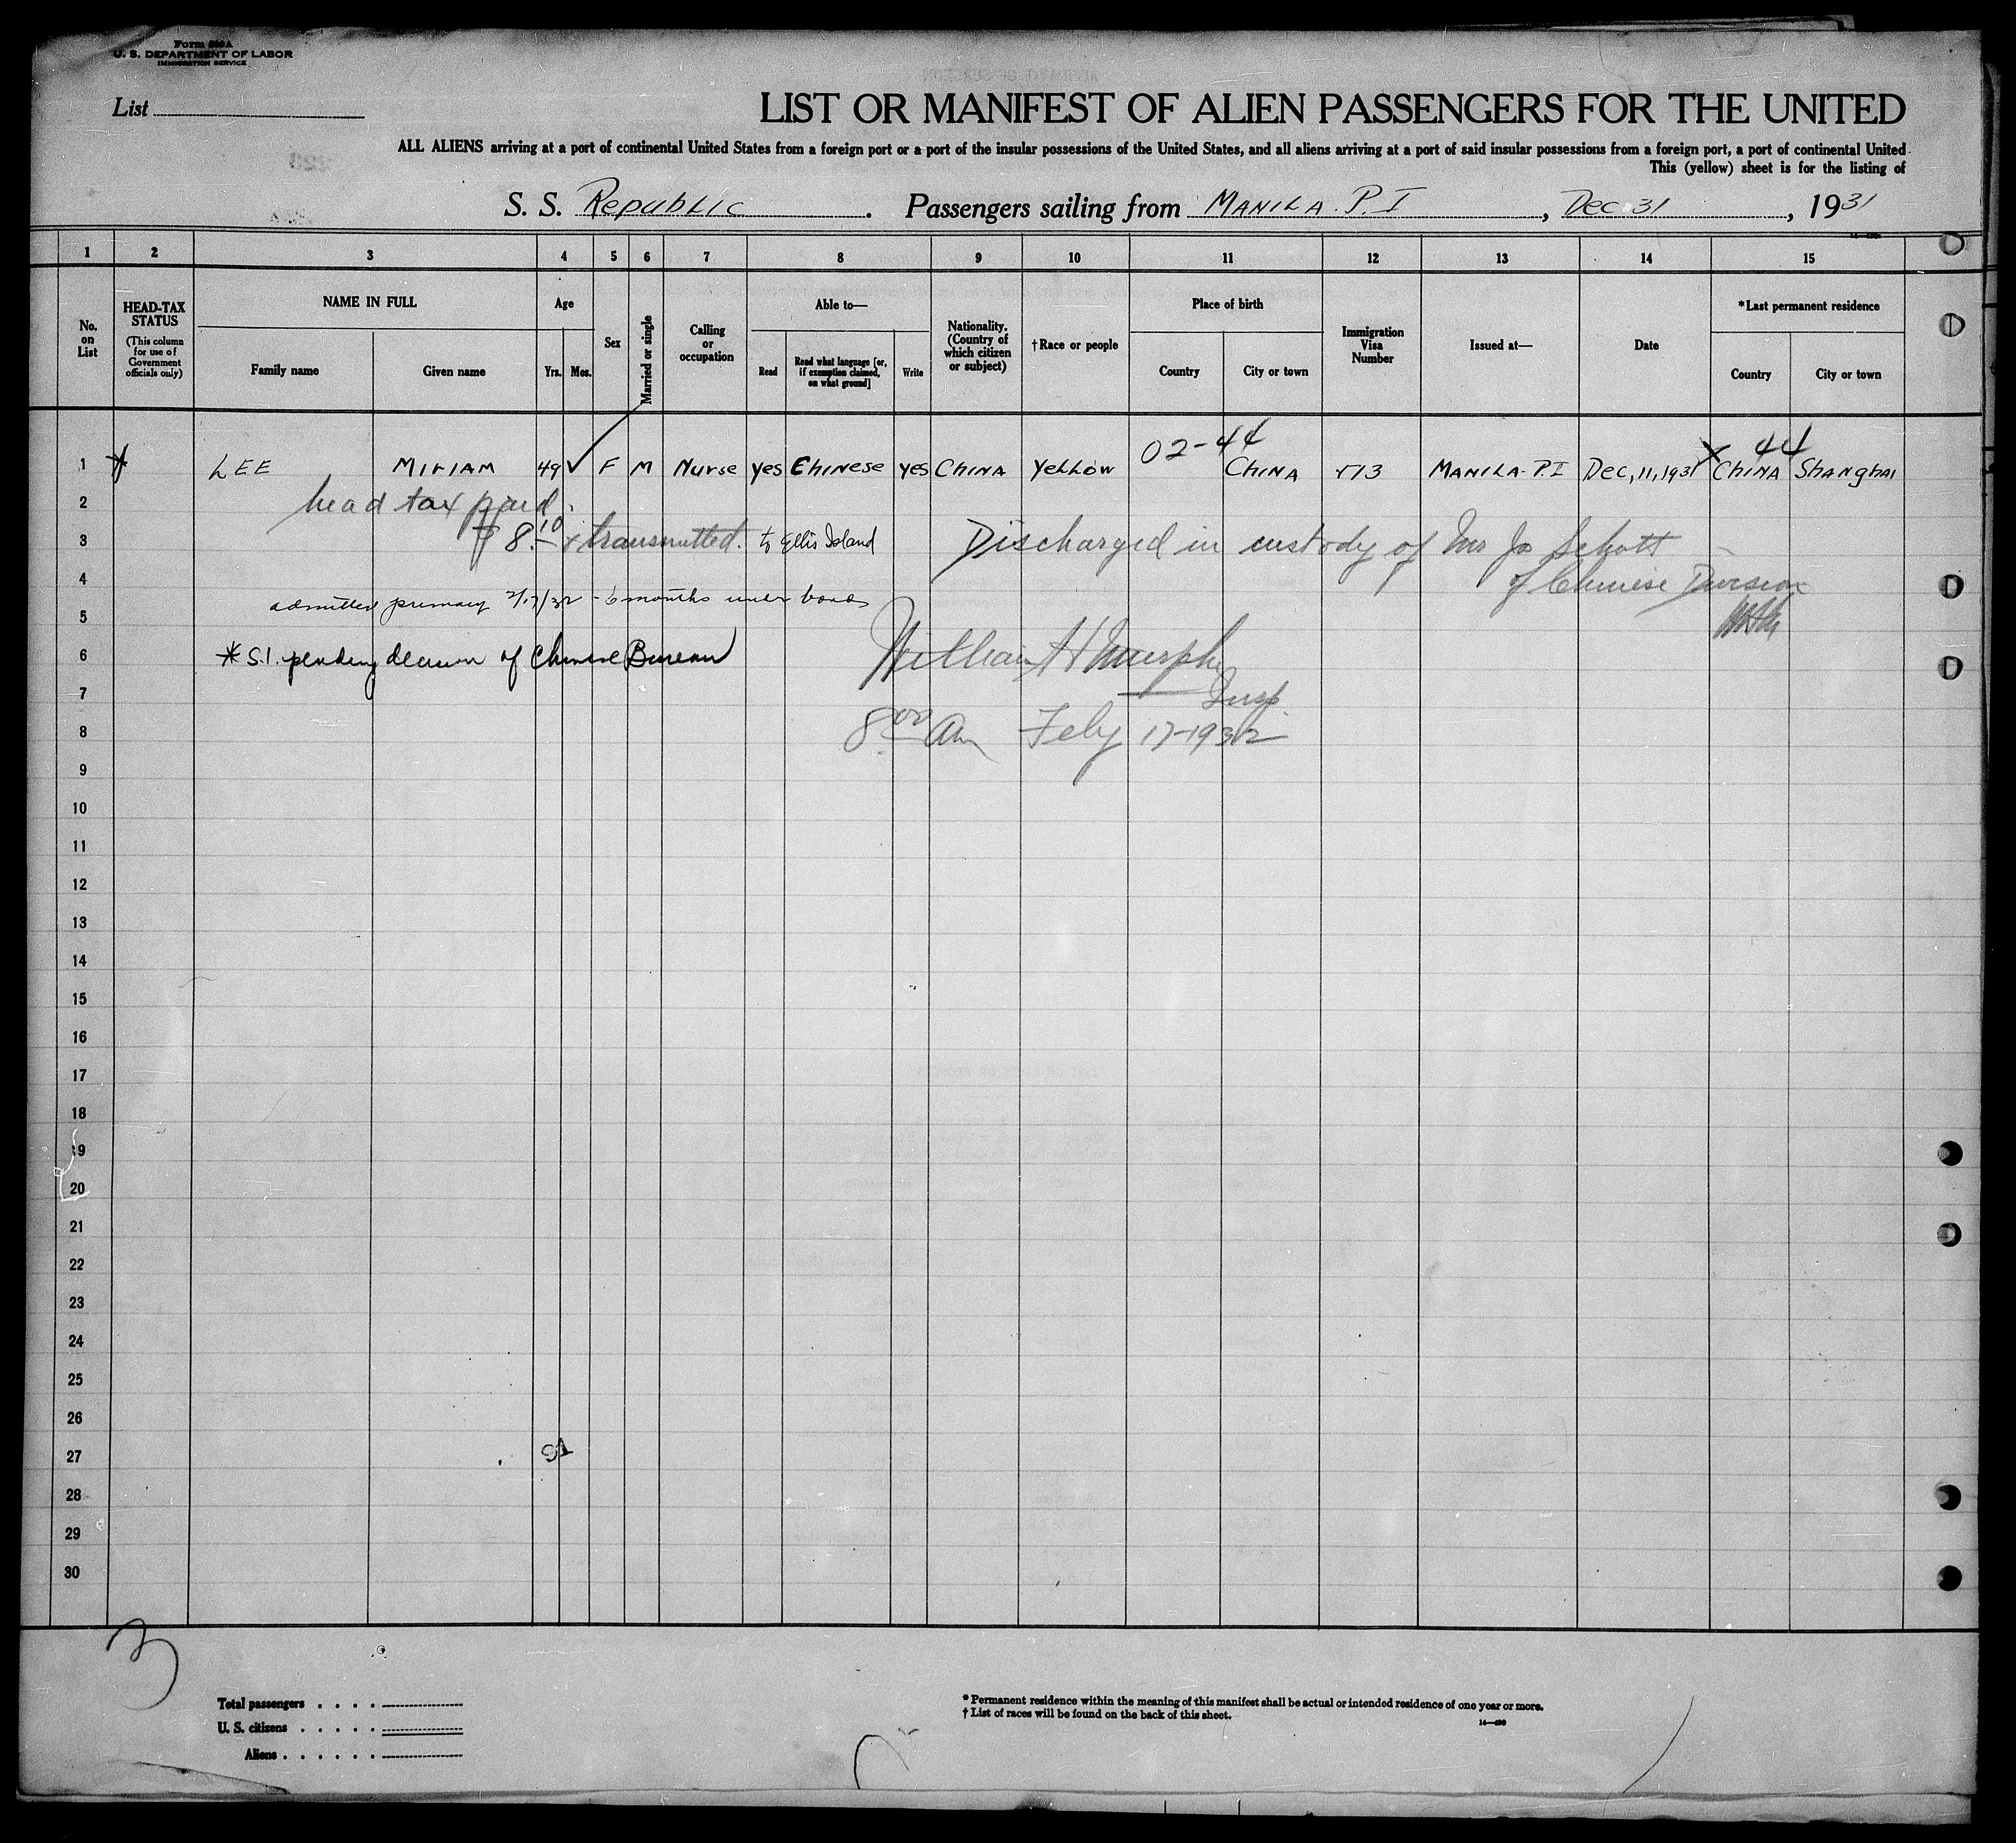 Form 500A
U. S. DEPARTMENT OF LABOR
IMMIGRATION SERVICE
List
LIST OR MANIFEST OF ALIEN PASSENGERS FOR THE UNITED
ALL ALIENS arriving at a port of continental United States from a foreign port or a port of the insular possessions of the United States, and all aliens arriving at a port of said insular possessions from a foreign port, a port of continental United
This (yellow) sheet is for the listing of
S. S. Republic. Passengers sailing from MANILA. P.I, Dec 31, 1931
1 2 3 4 5 6 7 8 9 10 11 12 13 14 15
No. on List
HEAD-TAX STATUS
(This column for use of Government officials only)
NAME IN FULL
Family name Given name
Age
Yrs. Mos.
Sex
Married or single
Calling or occupation
Able to—
Read Read what language [or, if exemption claimed, on what ground] Write
Nationality. (Country of which citizen or subject)
†Race or people
Place of birth
Country City or town
Immigration Visa Number
Issued at—
Date
*Last permanent residence
Country City or town
02-44 44
1 LEE MIRIAM 49 ✓ F M Nurse yes Chinese yes CHINA Yellow CHINA 713 MANILA-P.I Dec, 11, 1931 X CHINA Shanghai
2 head tax paid.
3 $8.10 & transmitted. to Ellis Island Discharged in custody of Mr Jo Schott
4 of Chinese Division
admitted primary 2/17/32 - 6 months under bonds
5
6 * S.I. pending decision of Chinese Bureau William H Murphy
7 Insp.
8 8 00 Am Feby 17-1932
9
10
11
12
13
14
15
16
17
18
19
20
21
22
23
24
25
26
27 91
28
29
30
3
Total passengers . . . .
U. S. citizens . . . . .
Aliens . . . . . .
* Permanent residence within the meaning of this manifest shall be actual or intended residence of one year or more.
† List of races will be found on the back of this sheet.